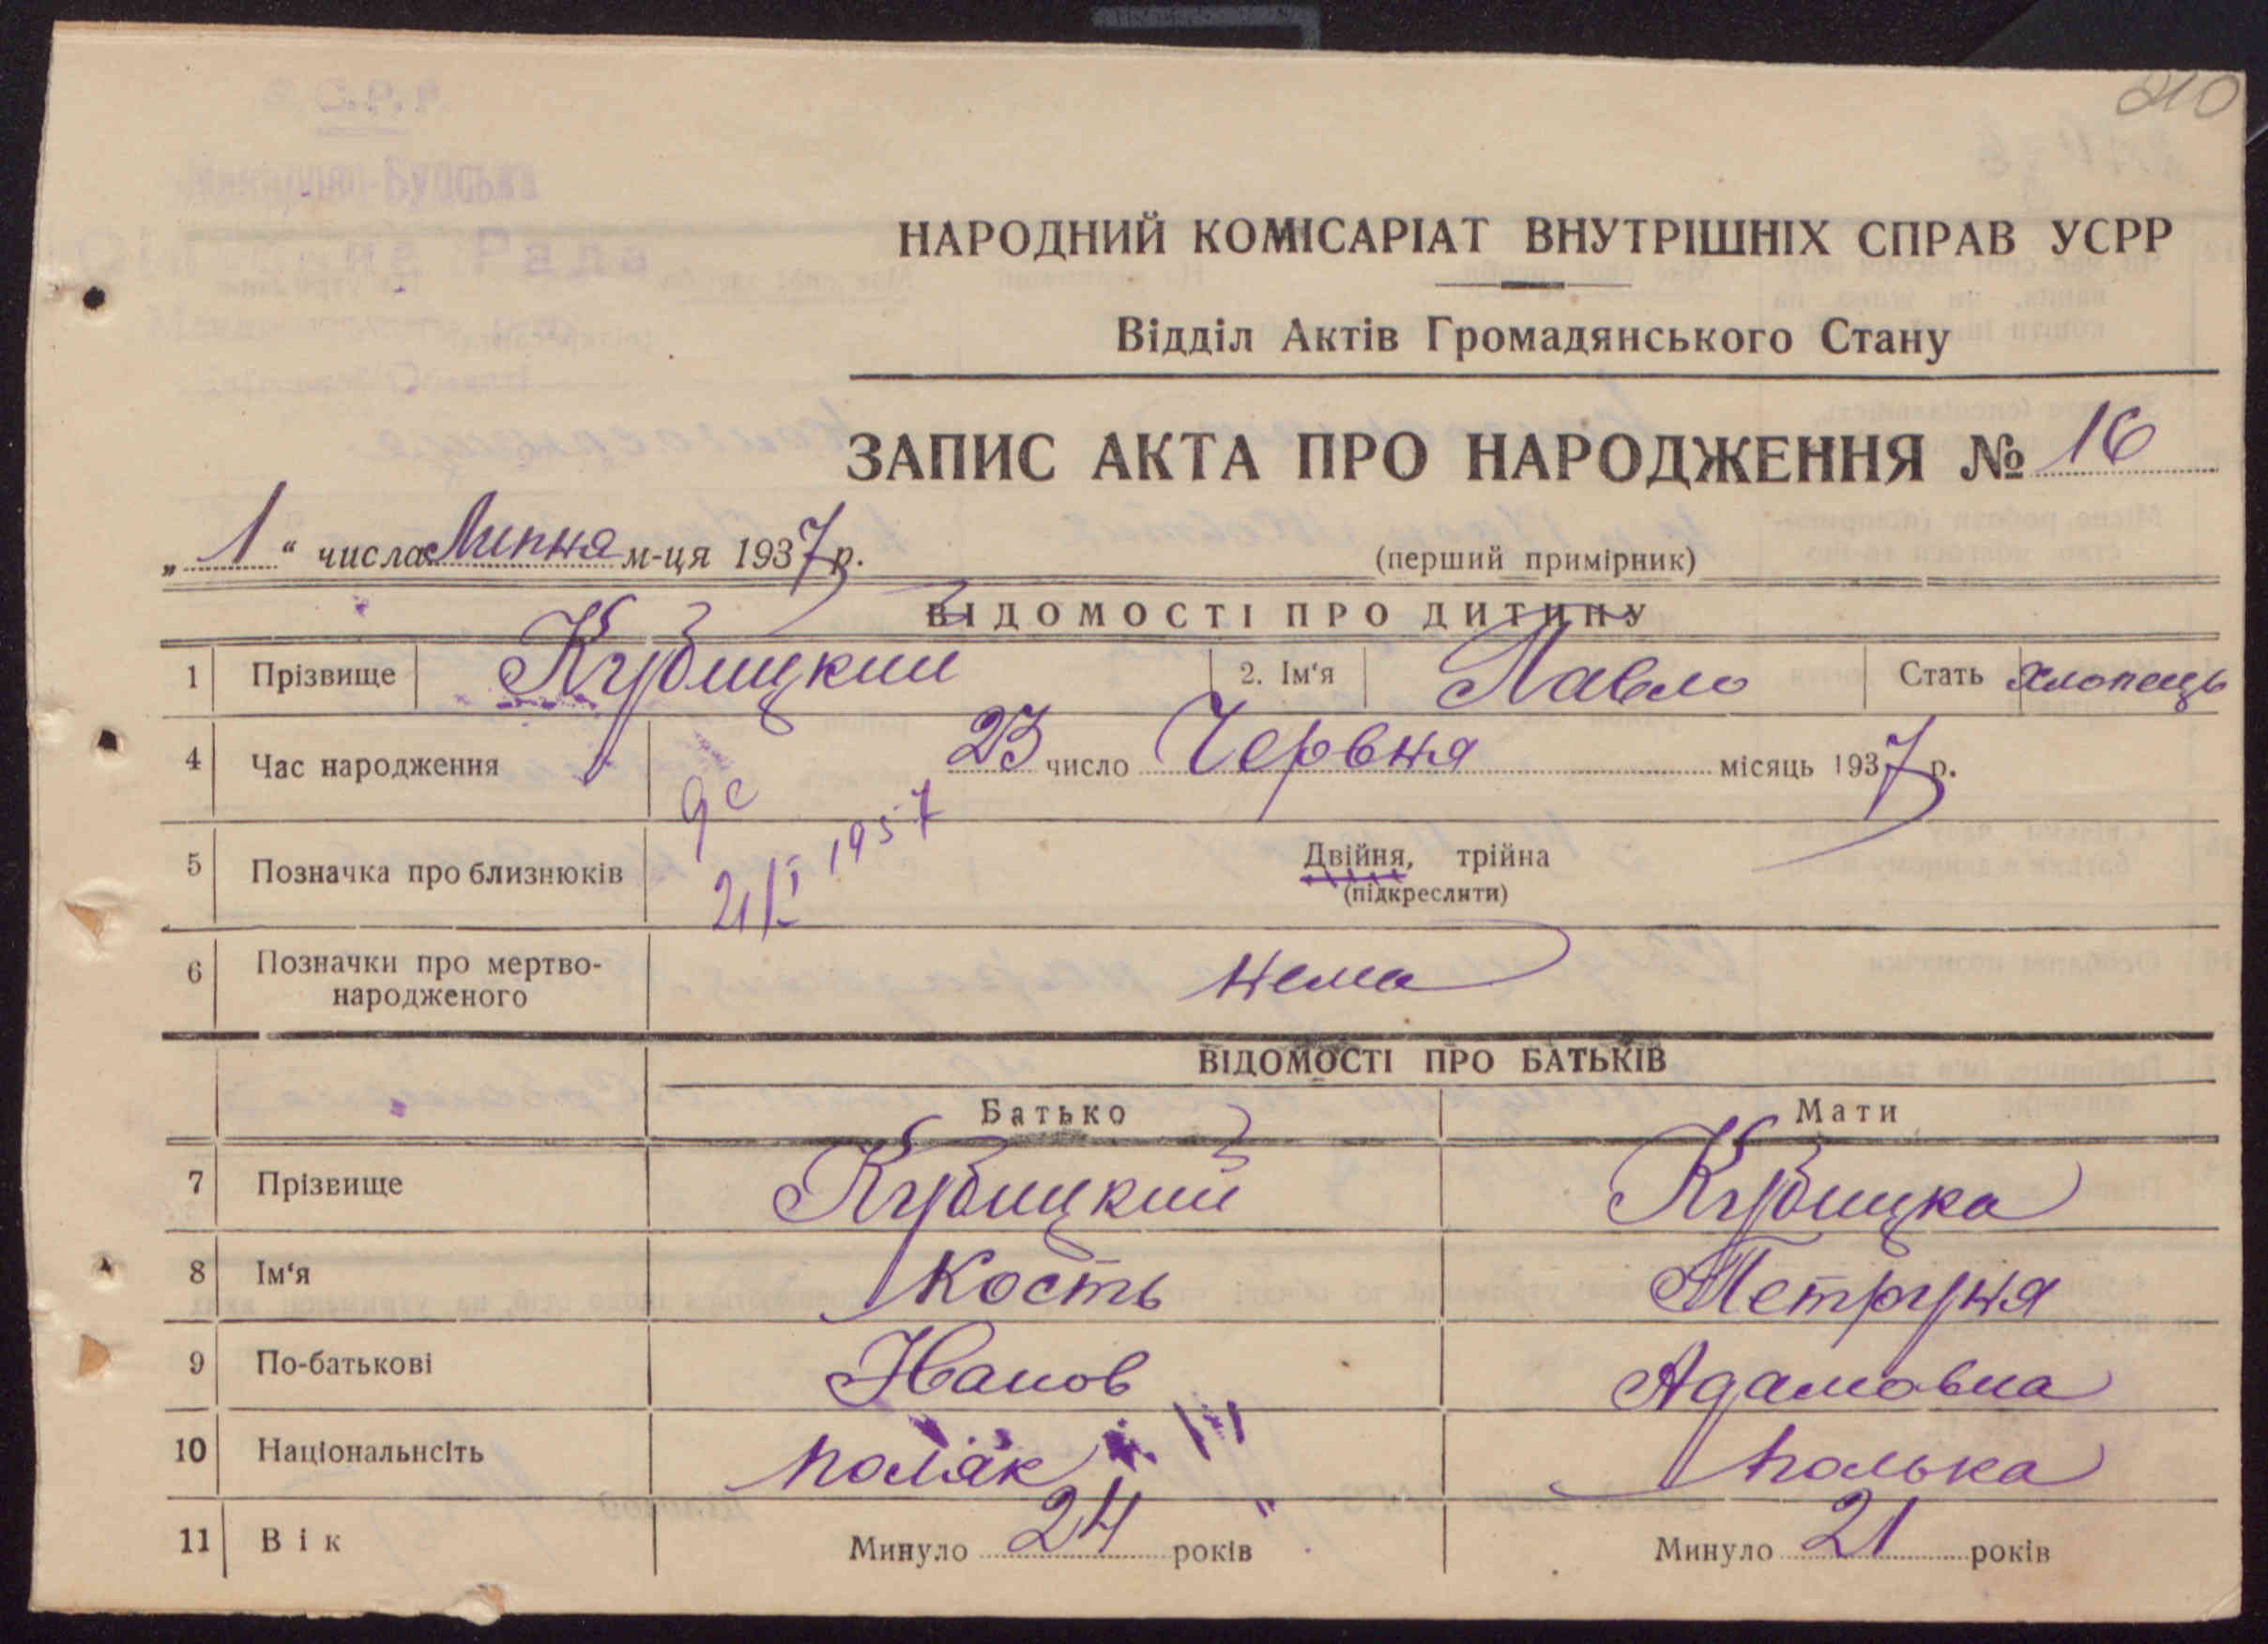 210
НАРОДНИЙ КОМІСАРІАТ ВНУТРІШНІХ СПРАВ УСРР
Відділ Актів Громадянського Стану
ЗАПИС АКТА ПРО НАРОДЖЕННЯ № 16
„ 1 “ числа Липня м-ця 1937 р.
(перший примірник)
ВІДОМОСТІ ПРО ДИТИНУ
1 Прізвище Кубицкий 2. Ім‘я Павло Стать хлопець
4 Час народження 23 число Червня місяць 1937 р.
21/I 1957
5 Позначка про близнюків Двійня, трійна
(підкреслити)
6 Позначки про мертво-
народженого нема
ВІДОМОСТІ ПРО БАТЬКІВ
Батько Мати
7 Прізвище Кубицкий Кубицка
8 Ім‘я Кость Петруня
9 По-батькові Иванов Адамовна
10 Національнсіть поляк полька
11 Вік Минуло 24 років Минуло 21 років